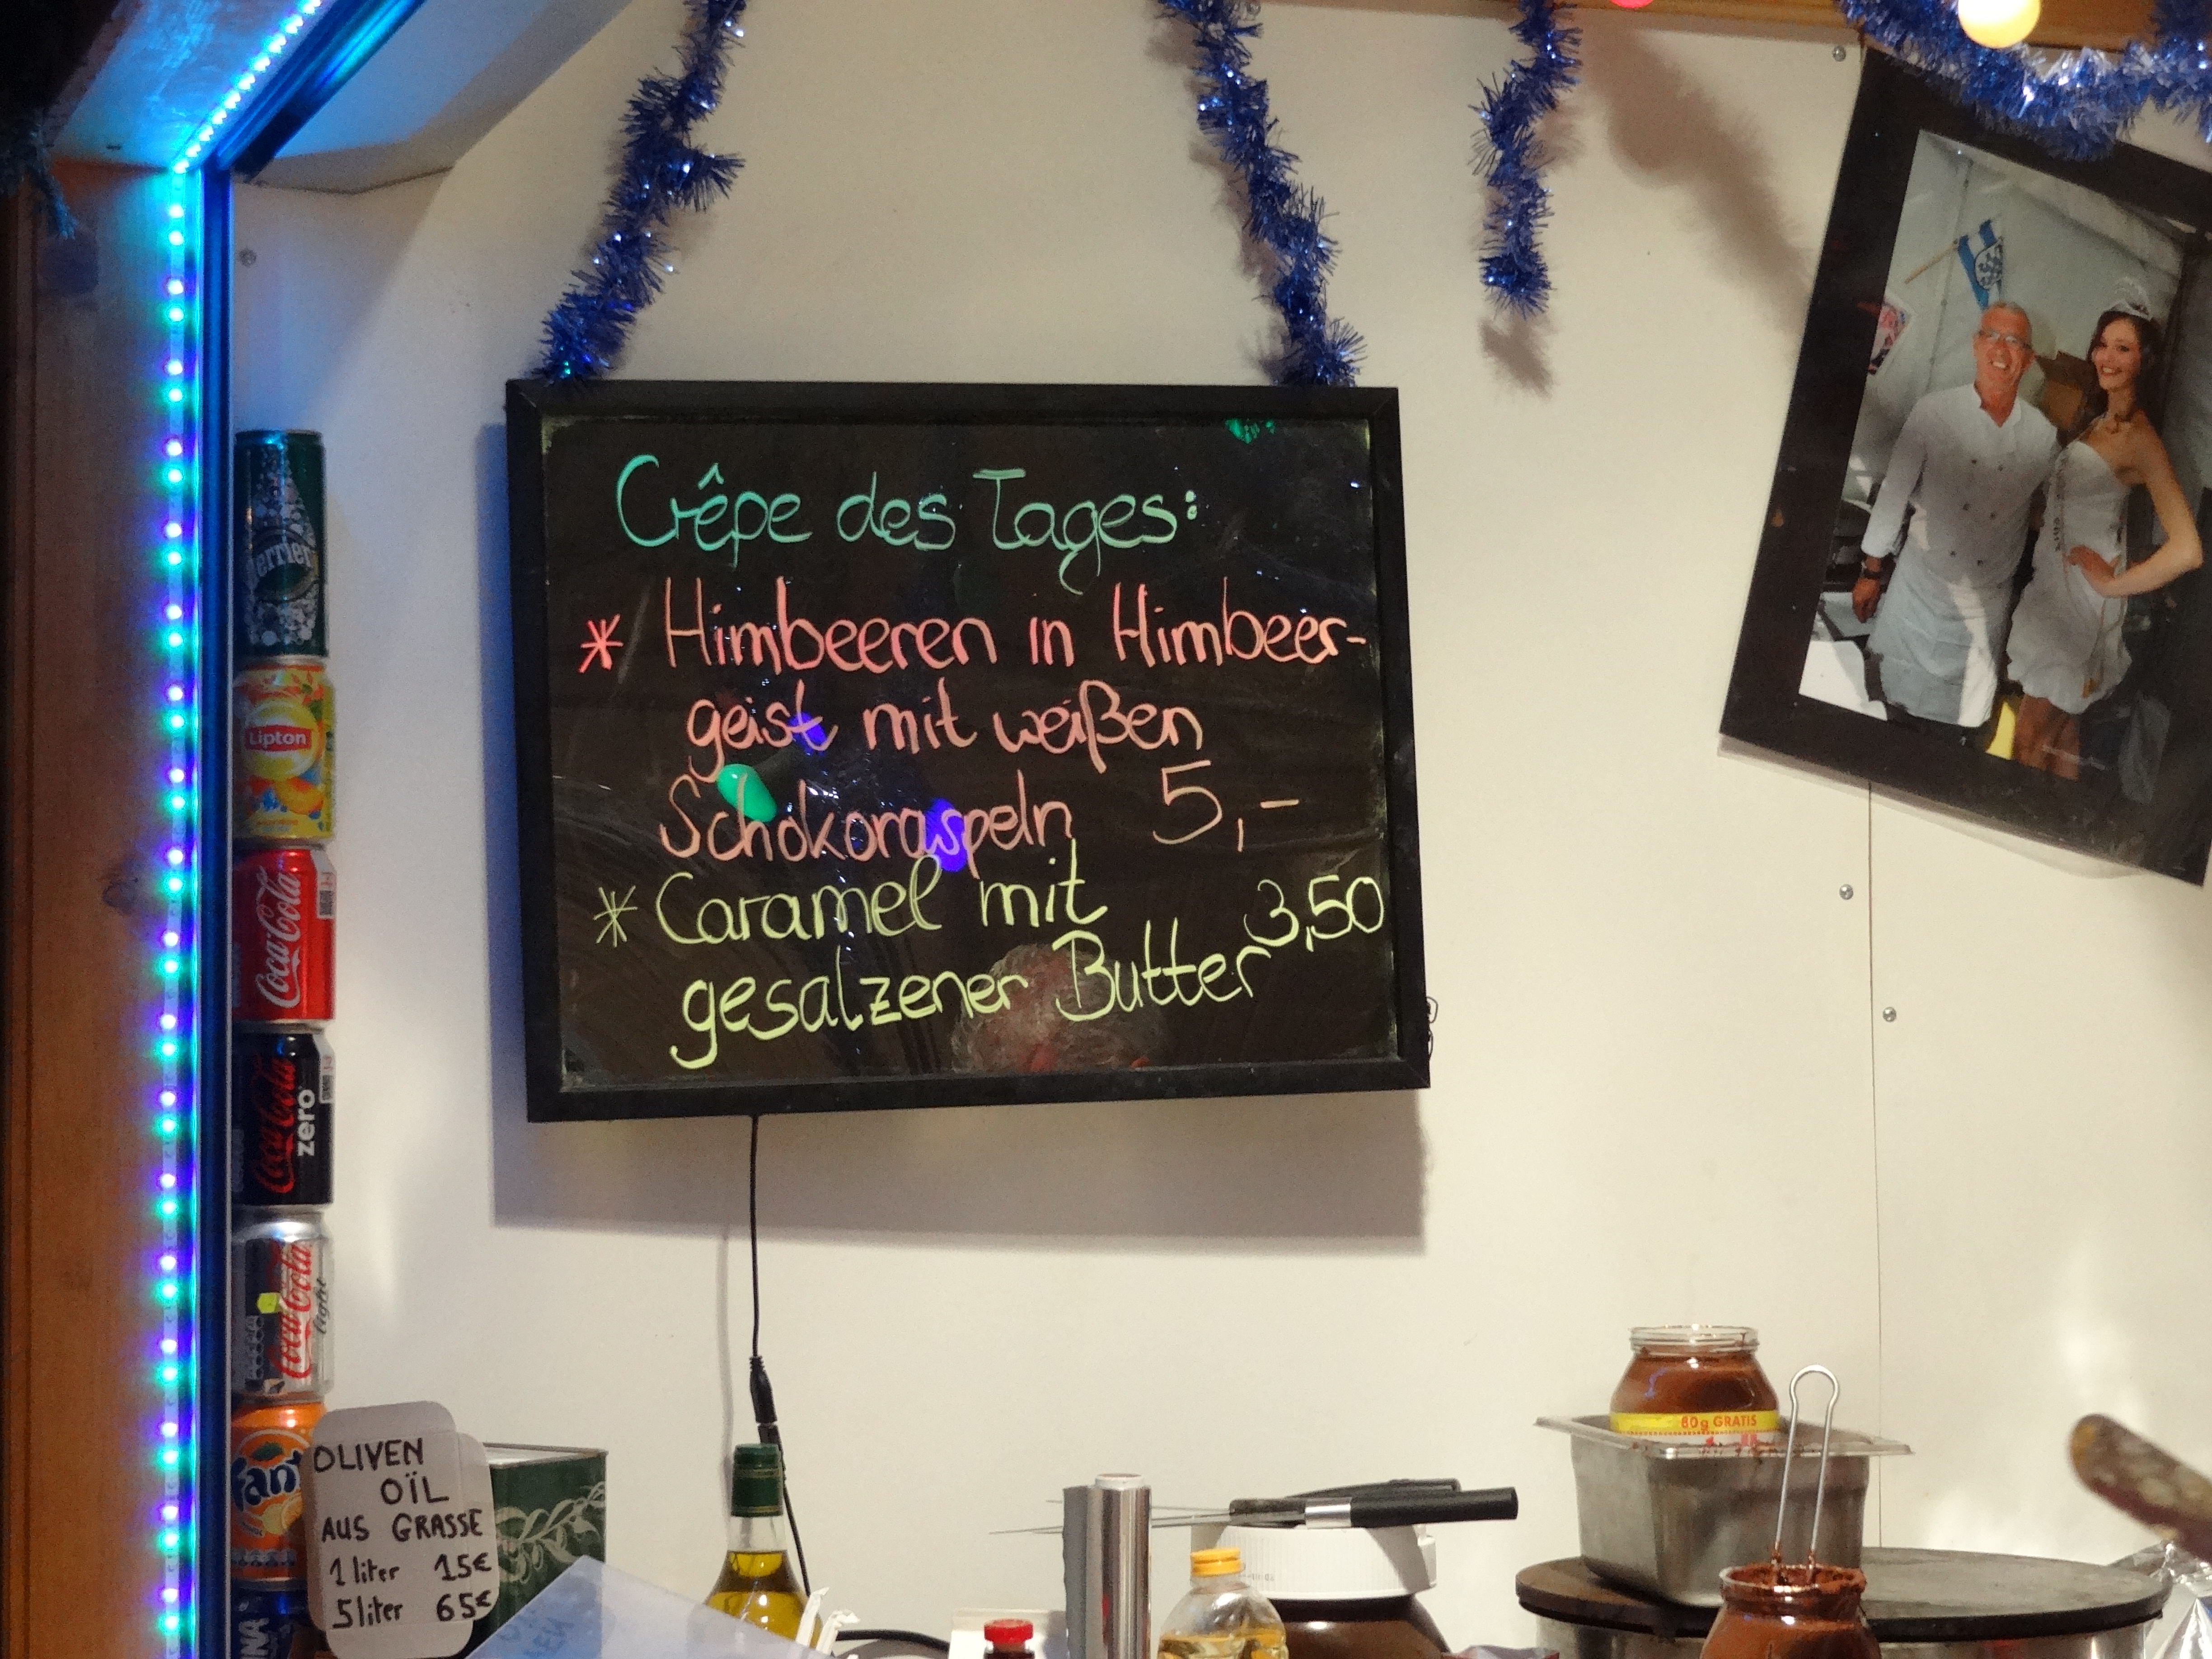 Crêpe des Tages:
* Himbeeren in Himbeer-
geist mit weißen
Schokoraspeln 5,-
* Caramel mit 3,50
gesalzener Butter
Perrier
Lipton
Coca-Cola
Coca-Cola
zero
Coca-Cola
light
Fanta
OLIVEN
OÏL
AUS GRASSE
1 liter 15€
5 liter 65€
60g GRATIS